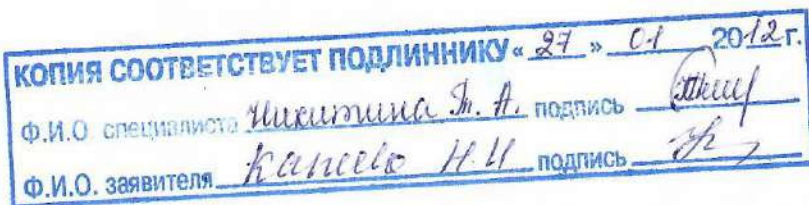 КОПИЯ СООТВЕТСТВУЕТ ПОДЛИННИКУ « 27 » 01 2012 г.
Ф.И.О. специалиста Никитина Т. А. подпись
Ф.И.О. заявителя Н.И подпись